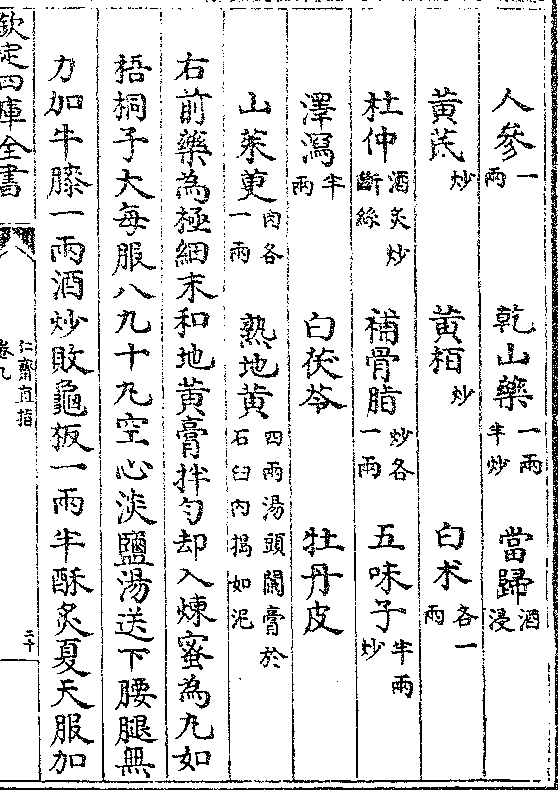 人參一兩 乾山藥一兩半炒 當歸酒浸
黄芪炒 黄栢炒 白术各一兩
杜仲酒炙炒斷絲 補骨脂炒各一兩 五味子半兩炒
澤瀉半兩 白茯苓 牡丹皮
山茱萸肉各一兩 熟地黄四兩湯頭闌膏於石臼内搗如泥
右前藥為極細末和地黄膏拌勻却入煉蜜為丸如
梧桐子大每服八九十丸空心淡鹽湯送下腰腿無
力加牛膝一兩酒炒敗龜板一兩半酥炙夏天服加
欽定四庫全書
仁齋直指
卷九
二十